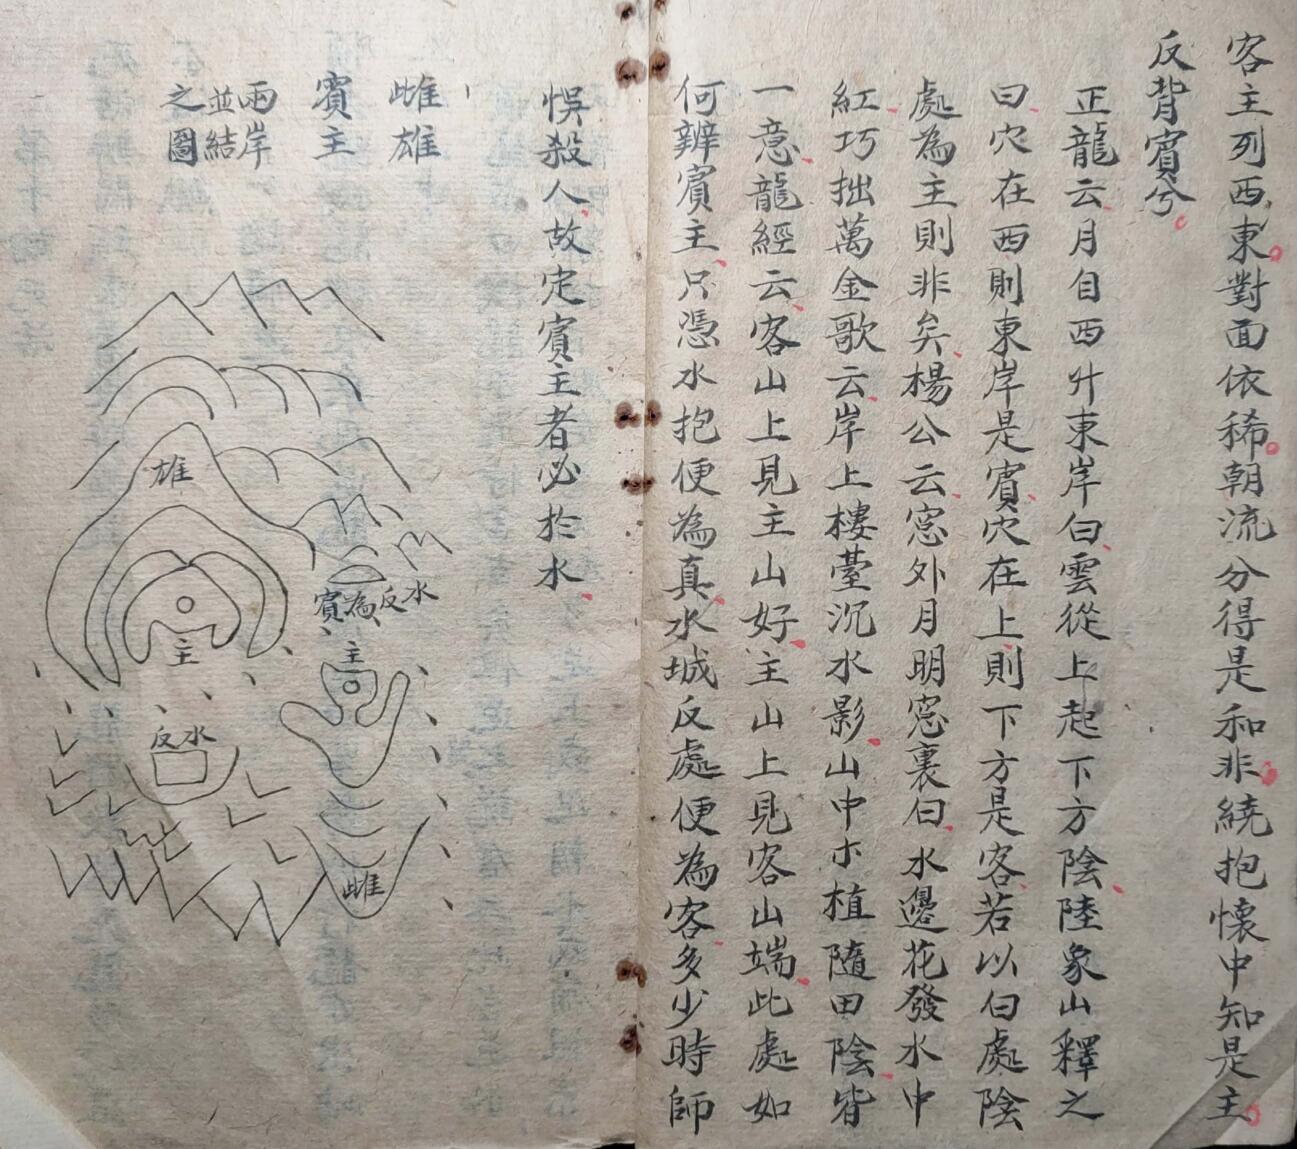 客主列西東對面依稀朝流分得是和非繞抱懷中知是主
反背賓兮
正龍云月自西升東岸白雲從上起下方陰陸象山釋之
曰穴在西則東岸是賓穴在上則下方是客若以白處陰
處為主則非矣楊公云窓外月明窓裏白水邊花發水中
紅巧拙萬金歌云岸上樓臺沉水影山中木植隨田陰皆
一意龍經云客山上見主山好主山上見客山端此處如
何辨賓主只憑水抱便為真水城反處便為客多少時師
悮殺人故定賓主者必於水
雌雄
賓主
兩岸
並結
之圖
雄
主
反水
賓為反水
主
雌